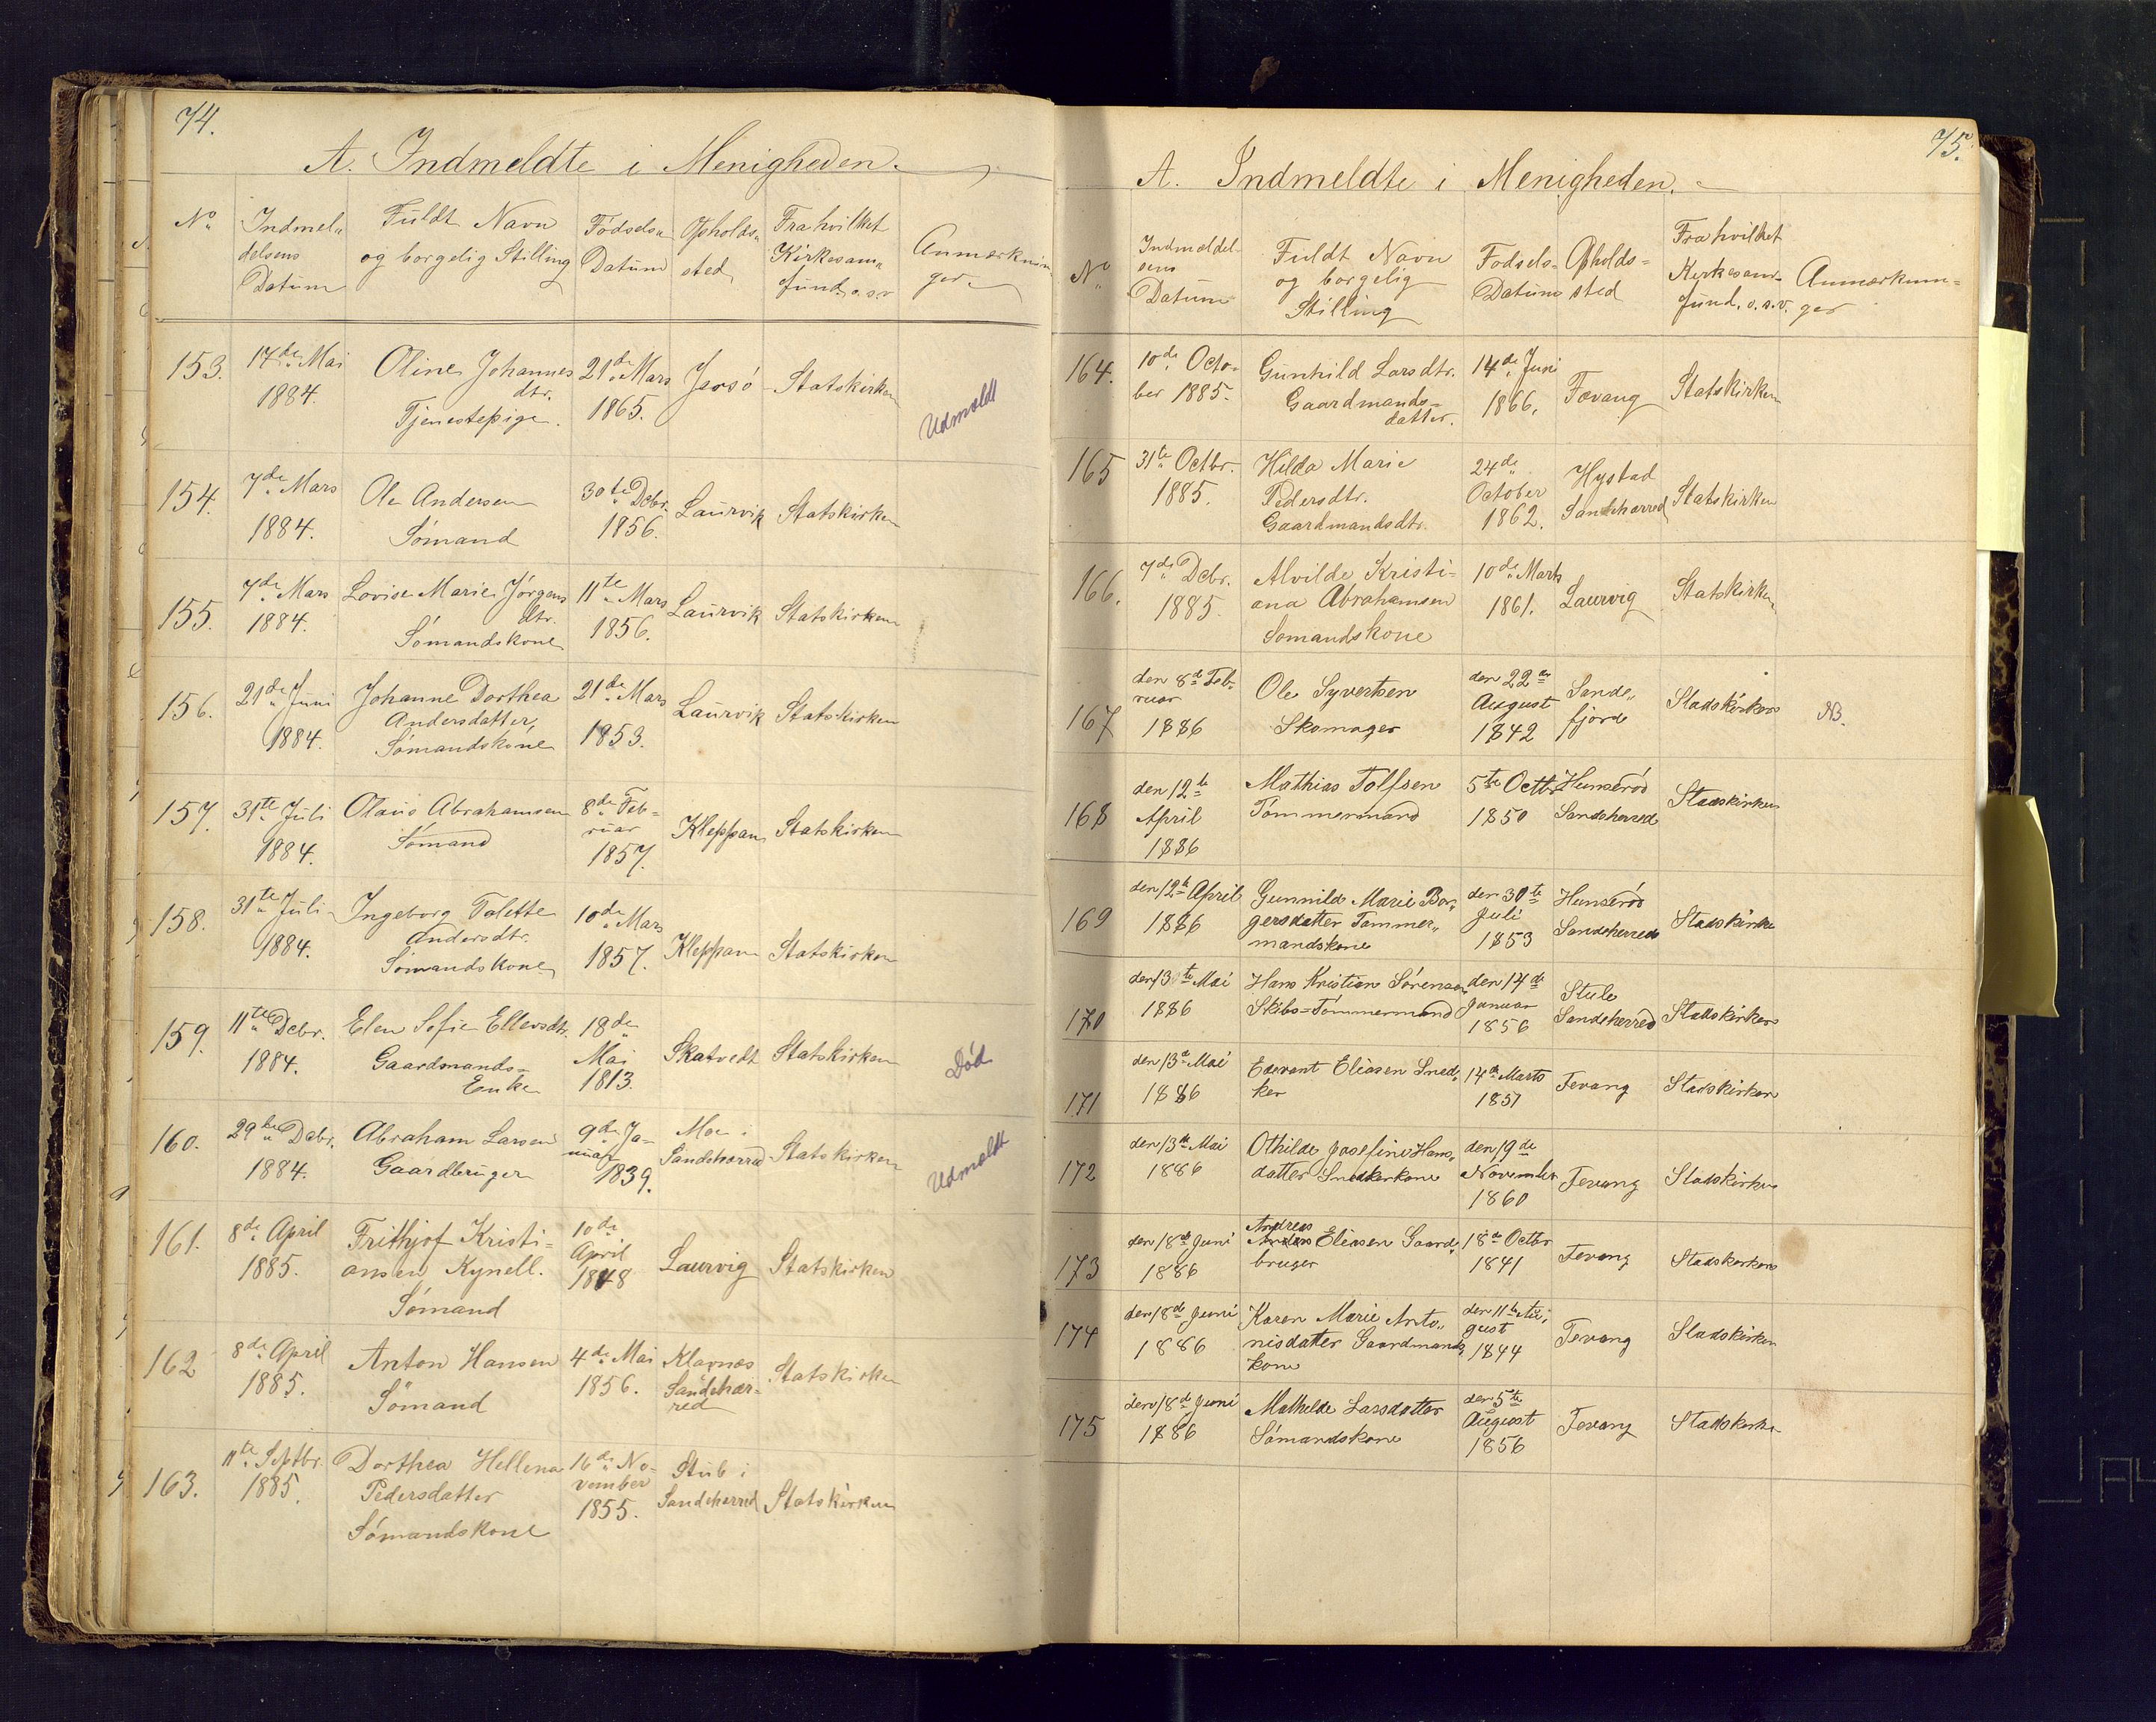 74.
A. Indmeldte i Menigheden.
No Indmel„ delsens Datum
Fuldt Navn og borgelig Stilling
Fødsels„ Datum
Opholds„ sted
Fra hvilket Kirkesam„ fund o.s.v
Anmærknin„ ger
153. 17de Mai 1884.
Oline Johannes dtr. Tjenestepige.
21de Mars 1865.
Jersö
Statskirken
Udmeldt
154. 7de Mars 1884.
Ole Andersen Sömand
30te Dcbr. 1856.
Laurvik
Statskirken
155. 7de Mars 1884.
Lovise Marie Jörgens dtr. Sömandskone
11te Mars 1856.
Laurvik
Statskirken
156. 21de Juni 1884.
Johanne Dorthea Andersdatter, Sömandskone
21de Mars 1853.
Laurvik
Statskirken
157. 31te Juli 1884.
Olaus Abrahamsen Sömand
8de Feb= ruar 1857.
Kleppan
Statskirken
158. 31te Juli 1884.
Ingeborg Tolette Andersdtr. Sömandskone
10de Mars 1857.
Kleppan
Statskirken
159. 11te Dcbr. 1884.
Elen Sofie Ellevsdtr. Gaardmands= Enke
18de Mai 1813.
Skatvedt
Statskirken
Död
160. 29de Dcbr. 1884.
Abraham Larsen Gaardbruger
9de Ja= nuar 1839.
Moe i Sandeherred
Statskirken
Udmeldt
161. 8de April 1885.
Frithjof Kristi= ansen Kynell. Sömand
10de April 1848
Laurvig
Statskirken
162 8de April 1885.
Anton Hansen Sömand
4de Mai 1856.
Klavnæs Sandeher= red
Statskirken
163. 11te Septbr. 1885.
Dorthea Hellena Pedersdatter Sömandskone
16de No= vember 1855.
Stub i Sandeherred
Statskirken
75.
A. Indmeldte i Menigheden.
No Indmeldel= sens Datum
Fuldt Navn og borgelig Stilling
Fødsels= Datum
Opholds= sted
Fra hvilket Kirkesam= fund. o.s.v.
Anmærknin= ger
164. 10de Octo= ber 1885.
Gunhild Larsdtr. Gaardmands= datter.
14de Juni 1866.
Fævang
Statskirken
165 31te Octbr. 1885.
Hilda Marie Pedersdtr. Gaardmandsdtr.
24de October 1862.
Hystad Sandeherred
Statskirken
166. 7de Dcbr. 1885
Alvilde Kristi= ana Abrahamsen Sømandskone
10de Marts 1861.
Laurvig
Statskirken
167 den 8de Feb= ruar 1886
Ole Syvertsen Skomager
den 22de August 1842
Sande„ fjord
Stadskirken
NB.
168 den 12te April 1886
Mathias Tolfsen Tömmermand
5te Octbr 1850
Hunserød Sandeherred
Stadskirken
169 den 12te April 1886
Gunnild Marie Bor„ gersdatter Tømmer„ mandskone
den 30te Juli 1853
Hunserød Sandeherred
Stadskirke
170 den 13te Mai 1886
Hans Kristian Sørensen Skibs=Tømmermand
den 14de Januar 1856
Stub Sandeherred
Stadskirken
171 den 13de Mai 1886
Edevart Eliasen Sned„ ker
14de Marts 1851
Fevang
Stadskirken
172 den 13de Mai 1886
Othilde Josefine Hans„ datter Snedkerkone
den 19de November 1860
Fevang
Stadskirken
173 den 18de Juni 1886
Andreas Eliasen Gaard„ bruger
18de Octbr 1841
Fevang
Stadskirken
174 den 18de Juni 1886
Karen Marie Anto„ nisdatter Gaardmands kone
den 11te Au„ gust 1844
Fevang
Stadskirken
175 den 18de Juni 1886
Mathilde Larsdatter Sömandskone
den 5te August 1856
Fevang
Stadskirke